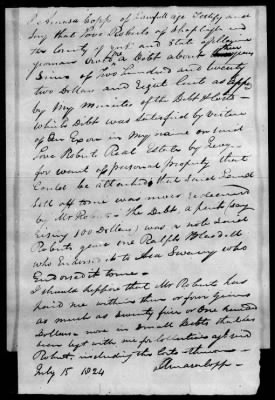 I Amasa Copp of lawfull age Testify and
Say that Love Roberts of Shapleigh in
the County of York and State of Maine
yeoman owed me a Debt about three years
Since of Two hundred and twenty
two Dollars and Eight Cents as app
by my minutes of the Debt & Costs
which Debt was Satisfied by virtue
of an Exon in my name on said
Love Robert Real Estate by Levy
for want of personal property that
Could be attached that said Land
Sett off tome was never redeemed
by Mr Roberts The Debt a part say
rising 100 Dollars was a note said
Roberts gave one Ralph Blasdell
who Endorsed it to Asa Swasey who
Endorsed it tome
I should suppose that Mr Robert has
paid me within three or four years
as much as Seventy five or One hundred
Dollars more in Small Debts that has
been left with me for Collection against
Robert, including the
July 15 1824
Amasa Copp